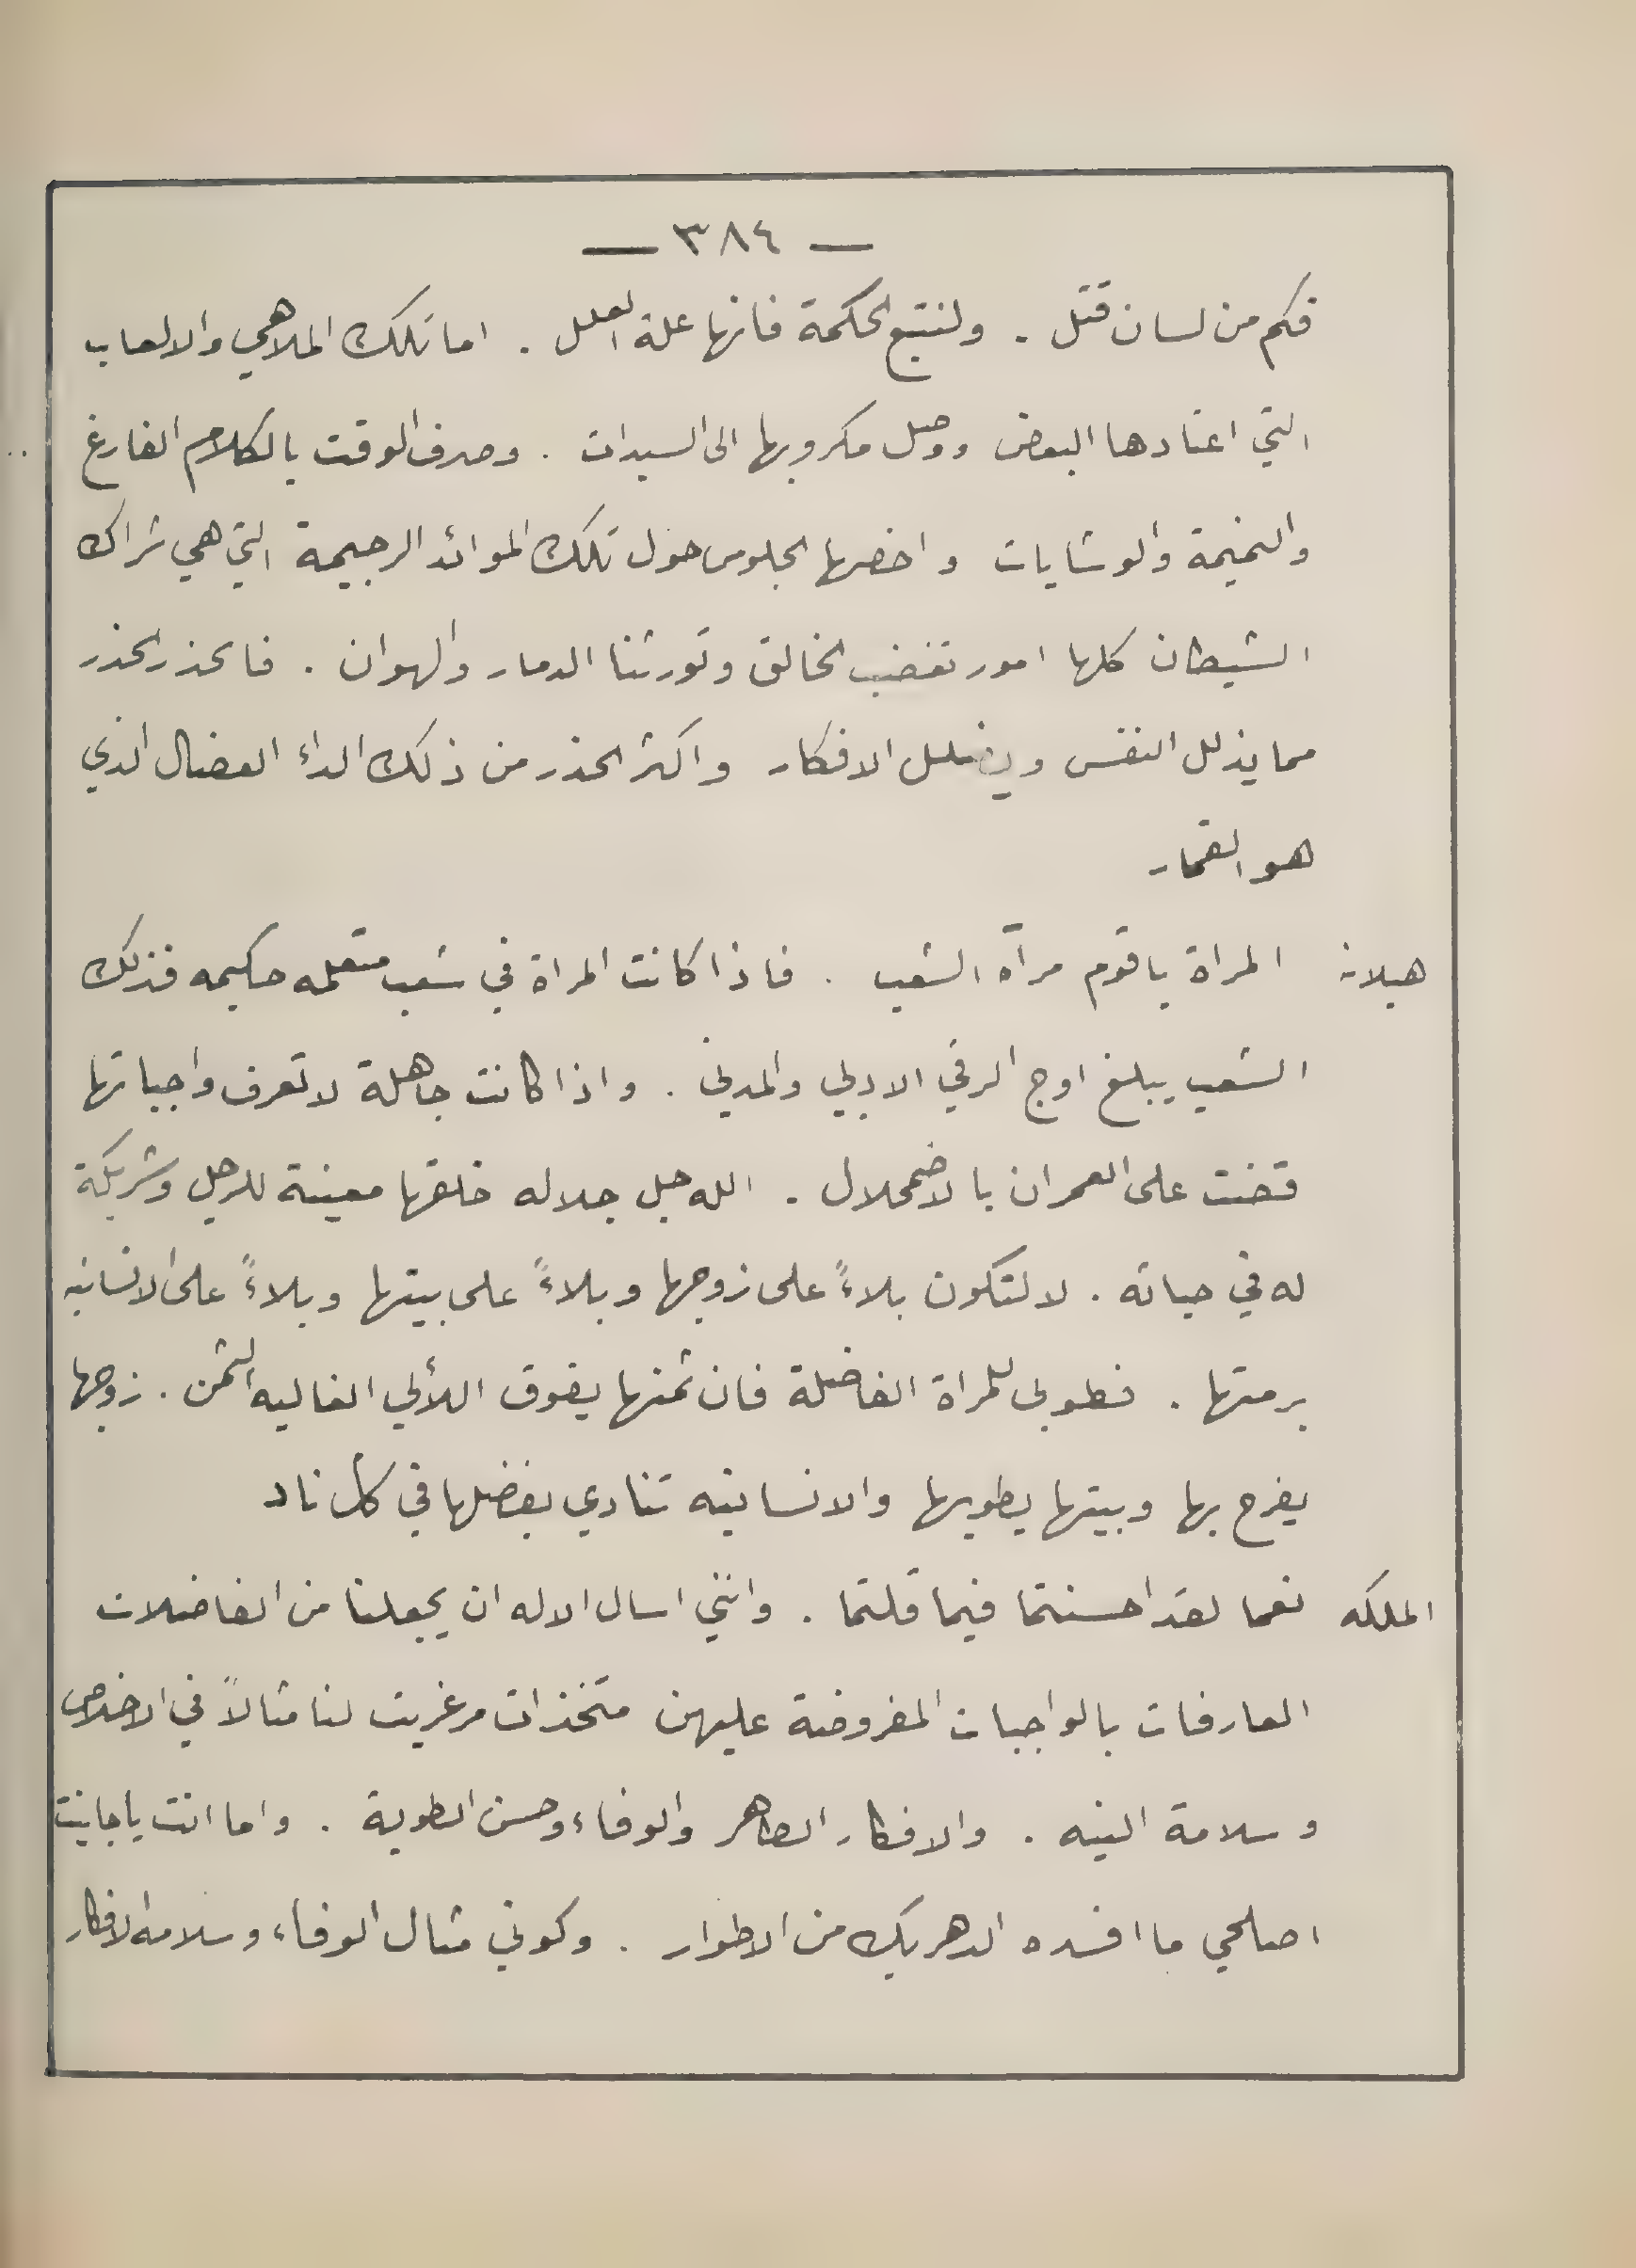 — ٣٨٤ —
فكم من لسان قتل . ولنتبع الحكمة فانها علة العلل . اما تلك الملاهي والالعاب
التي اعتادها البعض ووصل مكروبها الى السيدات . وصرف الوقت بالكلام الفارغ
والنميمة والوشايات واخصها الجلوس حول تلك الموائد الرجيمة التي هي شراك
الشيطان كلها امور تغضب الخالق وتورثنا الدمار والهوان . فالحذر الحذر
مما يذلل النفس ويضلل الافكار واكثر الحذر من ذلك الداء العضال الذي
هو القمار
هيلانة المراة ياقوم مرآة الشعب . فاذا كانت المراة في شعب متعلمه حكيمه فذلك
الشعب يبلغ اوج الرقي الادبي والمدني . واذا كانت جاهلة لا تعرف واجباتها
قضت على العمران بالاضمحلال . الله جل جلاله خلقها معينة للرجل وشريكة
له في حياته . لا لتكون بلاءً على زوجها وبلاءً على بيتها وبلاءً على الانسانيه
برمتها . فطوبى للمراة الفاضلة فان ثمنها يفوق اللألي الغاليه الثمن . زوجها
يفرح بها وبيتها يطوبها والانسانيه تنادي بفضلها في كل ناد
الملكه نعما لقد احسنتما فيما قلتما . وانني اسال الاله ان يجعلنا من الفاضلات
العارفات بالواجبات المفروضة عليهن متخذات مرغريت لنا مثالاً في الاخلاص
وسلامة النيه . والافكار الطاهر والوفاء وحسن الطوية . واما انت ياجانيت
اصلحي ما افسده الدهر بك من الاطوار . وكوني مثال الوفاء وسلامة الافكار